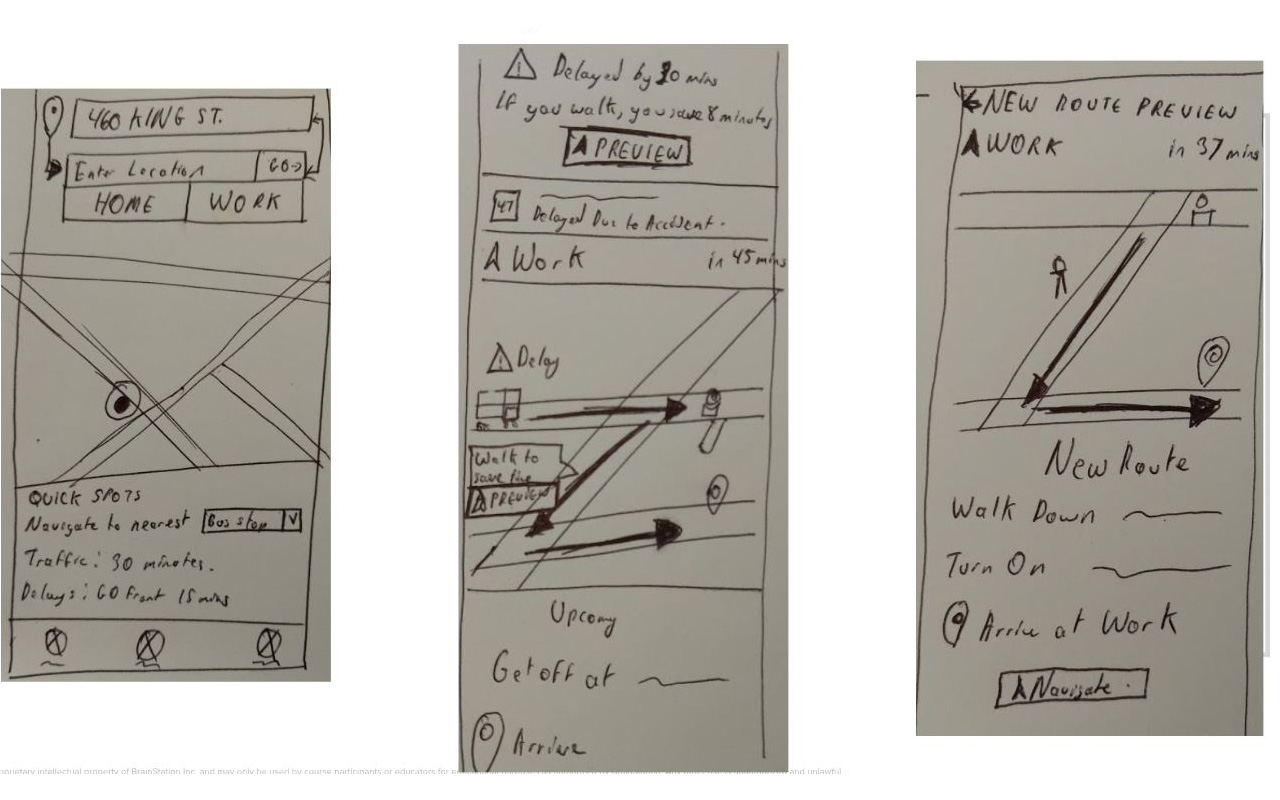 460 KING ST.
Enter Location GO→
HOME WORK
QUICK SPOTS
Navigate to nearest Bus stop V
Traffic: 30 minutes.
Delays: GO Front 15 mins
Delayed by 30 mins
If you walk, you save 8 minutes
PREVIEW
47
Delayed Due to Accident.
Work in 45 mins
Delay
Walk to
save time
PREVIEW
Upcomg
Get off at
Arrive
NEW ROUTE PREVIEW
WORK in 37 mins
New Route
Walk Down
Turn On
Arrive at Work
Navigate.
prietary intellectual property of BrainStation Inc. and may only be used by course participants or educators for
and unlawful